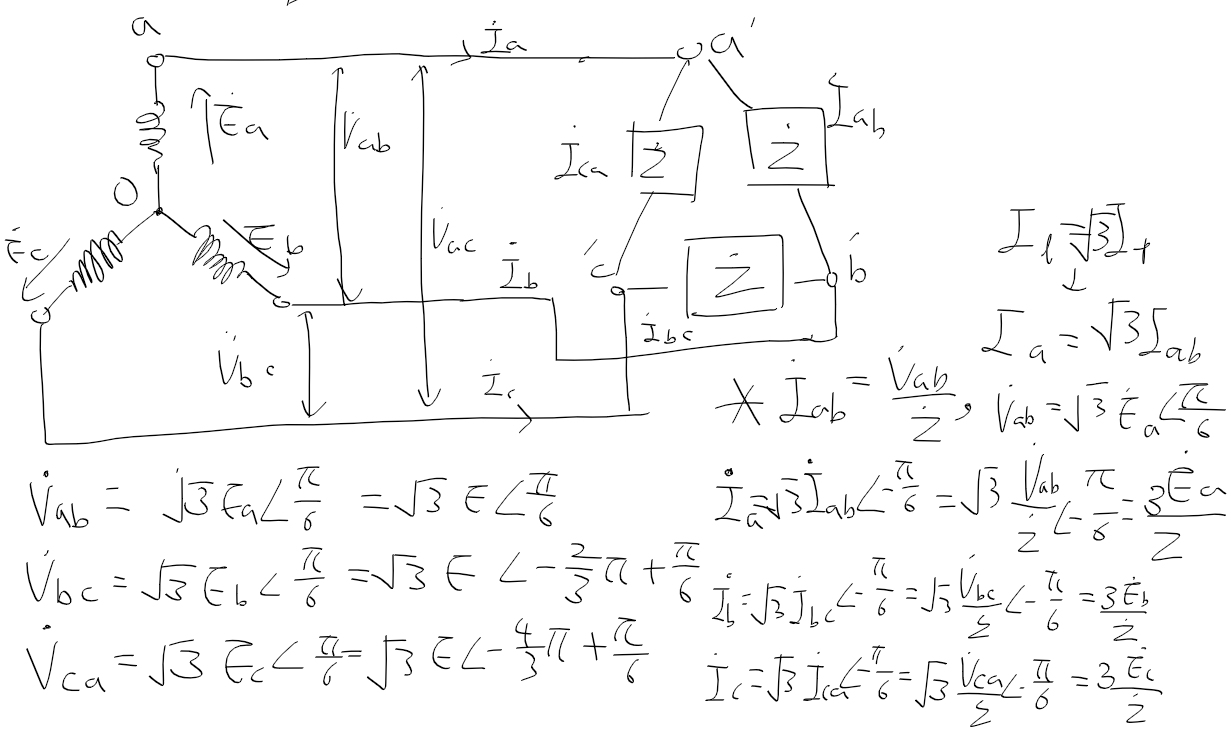 a
İa
a'
Ėa
V̇ab
İca
Ż
Ż
İab
O
Ėc
Ėb
V̇ac
İb
c'
Ż
b'
V̇bc
İbc
İc
I_l = √3 I_p
↓
I_a = √3 I_ab
* İab = V̇ab/Ż, V̇ab = √3 Ėa∠π/6
V̇ab = √3 Ea∠π/6 = √3 E∠π/6
V̇bc = √3 Eb∠π/6 = √3 E∠-2/3π + π/6
V̇ca = √3 Ec∠π/6 = √3 E∠-4/3π + π/6
İa = √3 İab∠-π/6 = √3 V̇ab/Ż∠-π/6 = 3Ėa/Z
İb = √3 İbc∠-π/6 = √3 V̇bc/Z∠-π/6 = 3Ėb/Ż
İc = √3 İca∠-π/6 = √3 V̇ca/Z∠-π/6 = 3Ėc/Ż